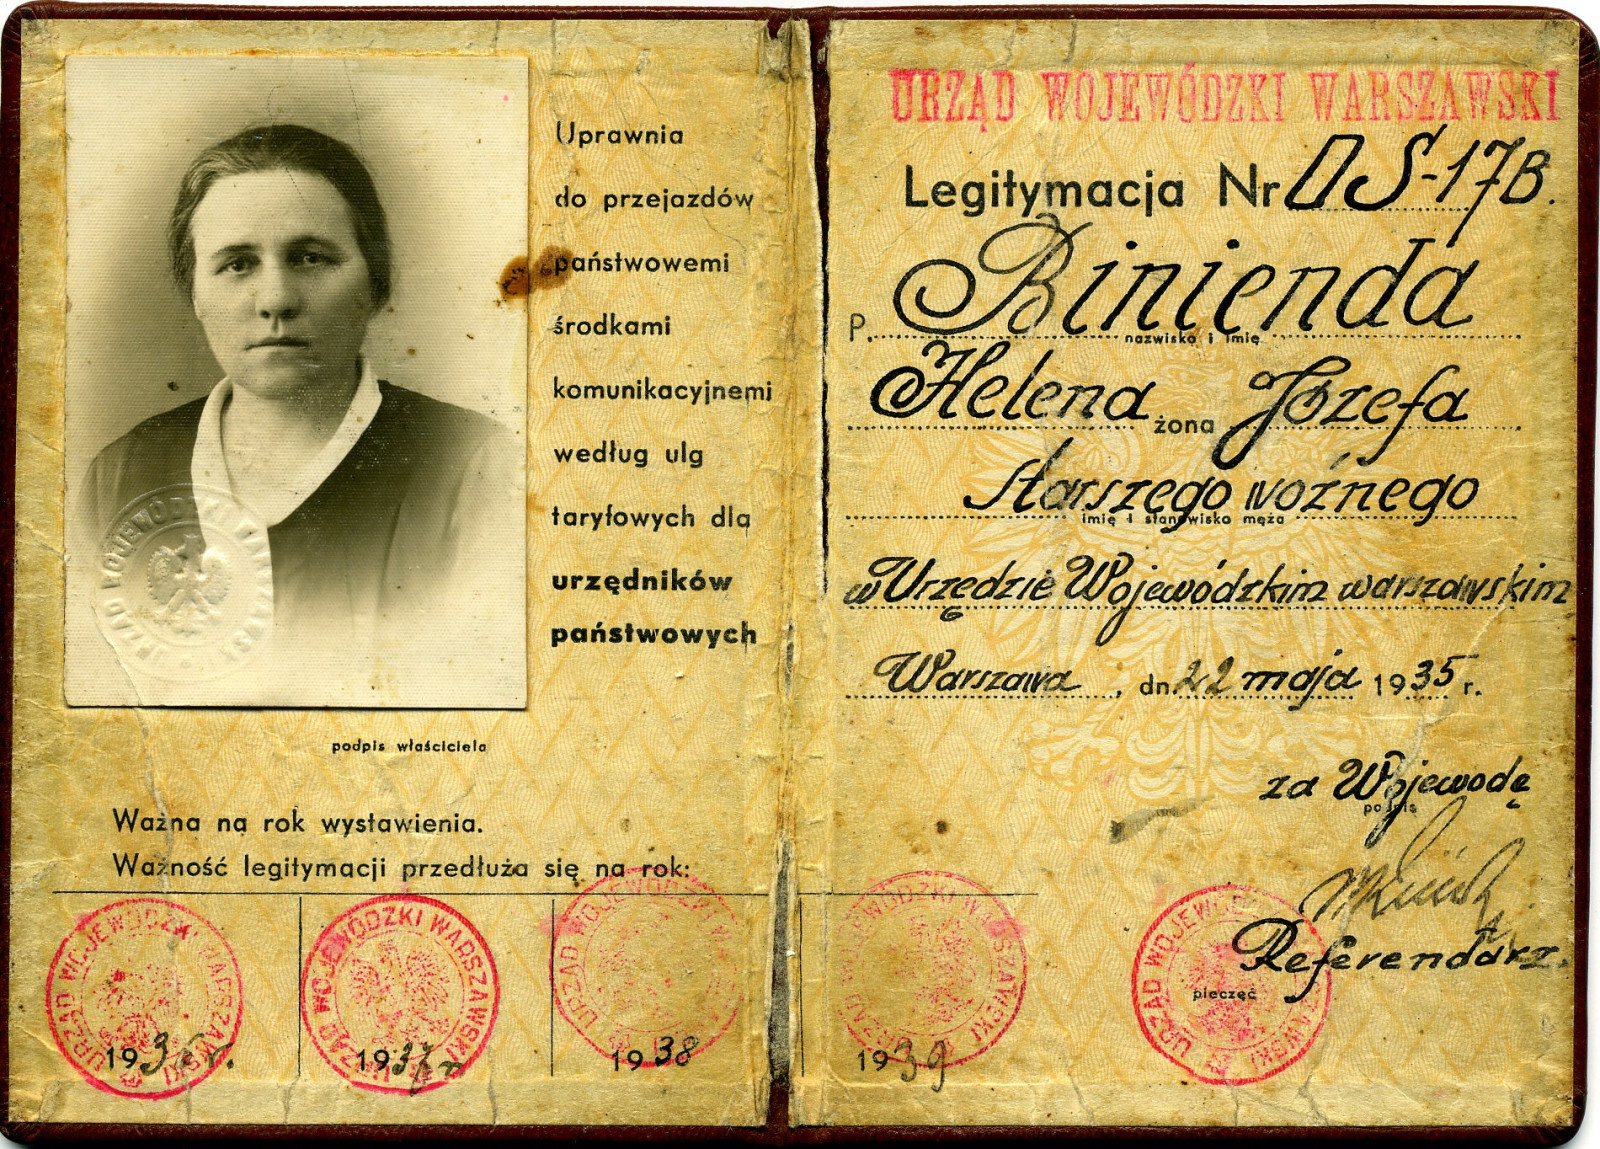 Uprawnia
do przejazdów
państwowemi
środkami
komunikacyjnemi
według ulg
taryfowych dla
urzędników
państwowych
podpis właściciela
Ważna na rok wystawienia.
Ważność legitymacji przedłuża się na rok:
URZĄD WOJEWÓDZKI WARSZAWSKI
1936 r.
URZĄD WOJEWÓDZKI WARSZAWSKI
1937 r
URZĄD WOJEWÓDZKI
1938
URZĄD WOJEWÓDZKI WARSZAWSKI
1939
URZĄD WOJEWÓDZKI WARSZAWSKI
Legitymacja Nr OS-17B.
P. Binienda
nazwisko i imię
Helena żona Józefa
starszego woźnego
imię i stanowisko męża
w Urzędzie Wojewódzkim warszawskim
Warszawa, dn 22 maja 1935 r.
za Wojewodę
podpis
Referendarz.
pieczęć
URZĄD WOJEWÓDZKI WARSZAWSKI
URZĄD WOJEWÓDZKI WARSZAWSKI